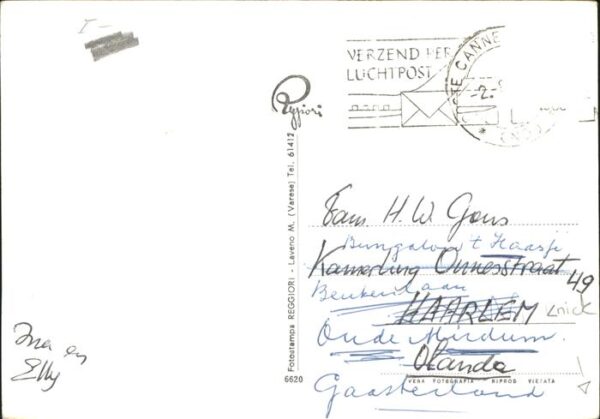 I-
VERZEND PER
LUCHTPOST
CANNE
-2.
Reggiori
Fotostampa REGGIORI - Laveno M. (Varese) Tel. 61412
6620
Fam. H.W. Gous
Bungalow 't Haasje
Kamerling Onnesstraat 49
Beukenlaan
HAARLEM
Oude Mirdum.
Olanda
VERA FOTOGRAFIA RIPROD. VIETATA
Gaasterland
Ina en
Elly